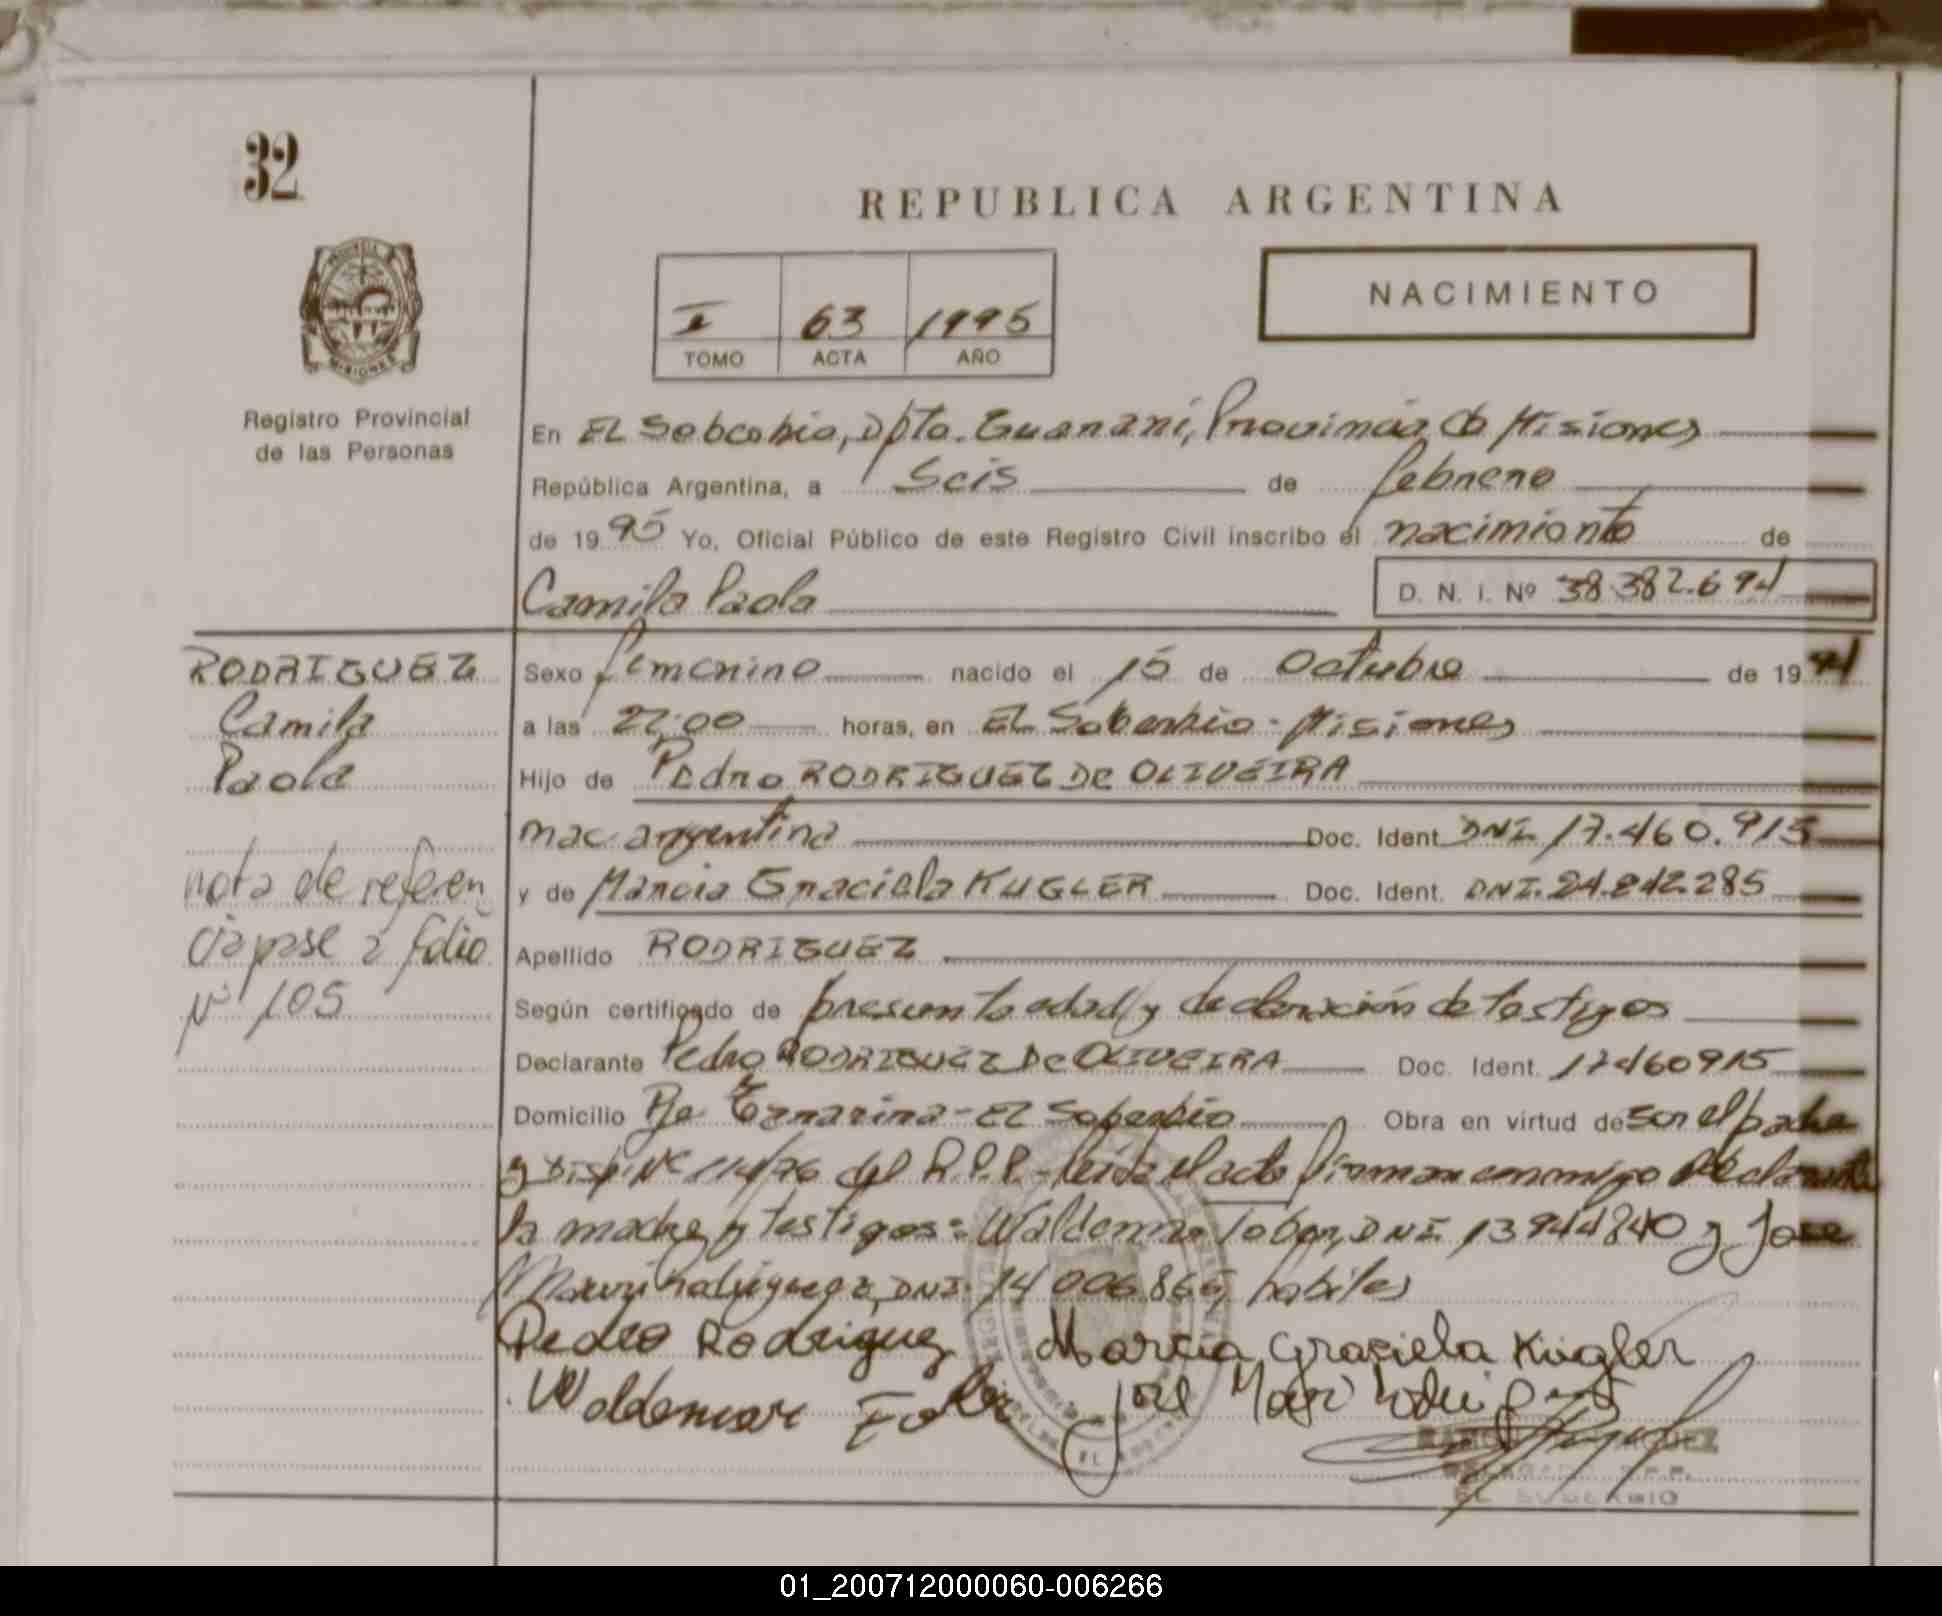 32
REPUBLICA ARGENTINA
NACIMIENTO
I 63 1995
TOMO ACTA AÑO
Registro Provincial
de las Personas
En EL Soberbio, Dpto. Guaraní, Provincia de Misiones
República Argentina, a Seis de febrero
de 1995 Yo, Oficial Público de este Registro Civil inscribo el nacimiento de
Camila Paola D. N. I. Nº 38.382.694
RODRIGUEZ
Camila
Paola
nota de referen
cia pase a folio
Nº 105
Sexo femenino nacido el 15 de Octubre de 1994
a las 22:00 horas, en EL Soberbio - Misiones
Hijo de Pedro RODRIGUEZ DE OLIVEIRA
nac. argentina Doc. Ident. DNI. 17.460.915
y de Marcia Graciela KUGLER Doc. Ident. DNI. 24.842.285
Apellido RODRIGUEZ
Según certificado de presunta edad y declaración de testigos
Declarante Pedro RODRIGUEZ DE OLIVEIRA Doc. Ident. 17460915
Domicilio Pje - EL Soberbio Obra en virtud de ser el padre
y Disp. Nº 114/76 del R.P.P. - leída el acta firman conmigo declarante
la madre y testigos: Waldemar DNI 13944840 y Jose
Mari Rodriguez, DNI. 14.006.865, habiles
Pedro Rodriguez Marcia Graciela Kugler
Waldemar José Mari Rodriguez
EL SOBERBIO
01_200712000060-006266